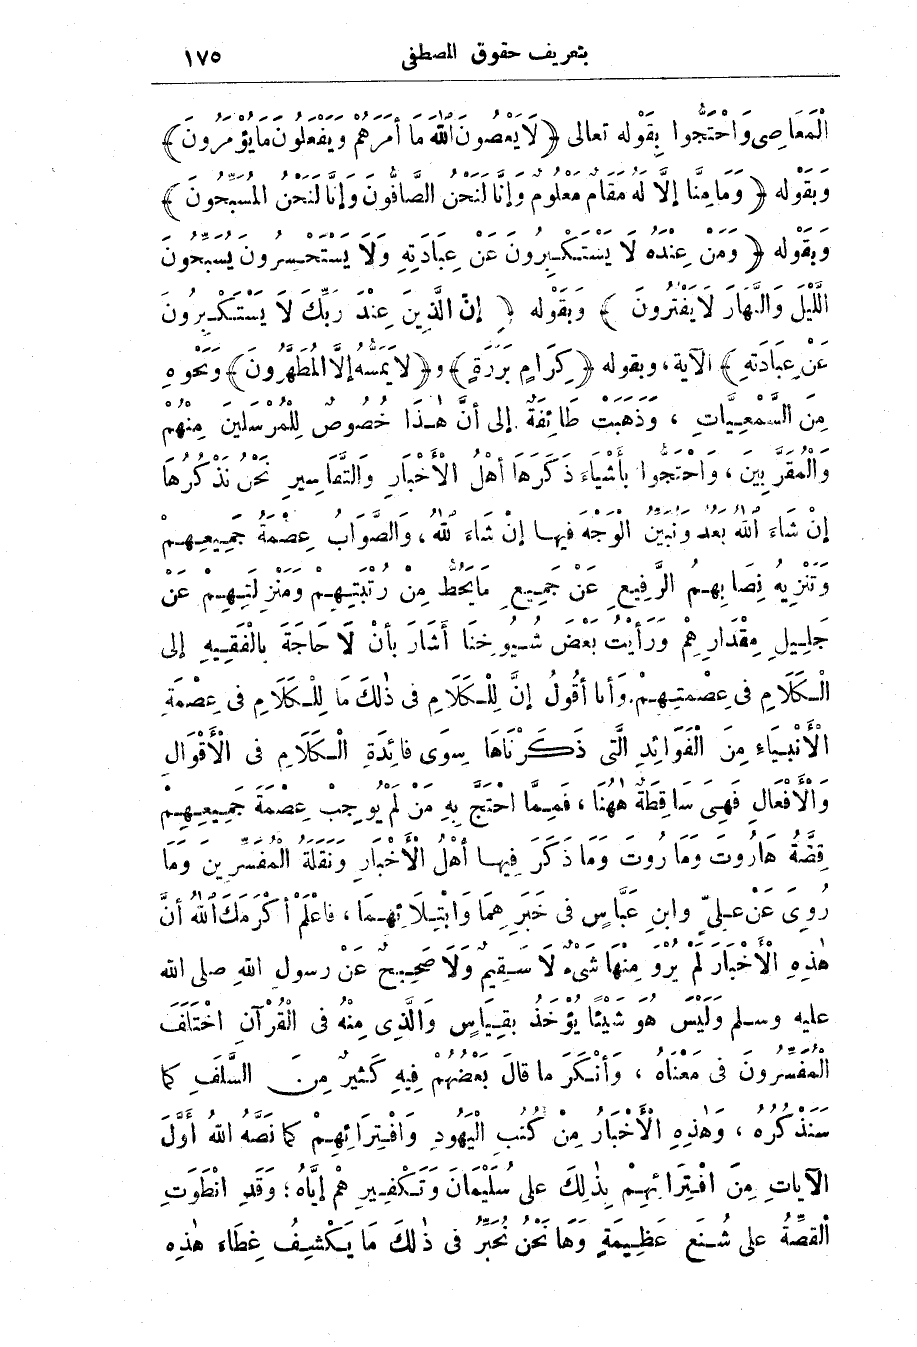 بتعريف حقوق المصطفى ١٧٥
الْمَعَاصِى وَاحْتَجُّوا بِقَوْلِهِ تعالى ﴿لَا يَعْصُونَ اللَّهَ مَا أَمَرَهُمْ وَيَفْعَلُونَ مَا يُؤْمَرُونَ﴾
وَبِقَوْلِهِ ﴿وَمَا مِنَّا إِلَّا لَهُ مَقَامٌ مَعْلُومٌ وَإِنَّا لَنَحْنُ الصَّافُّونَ وَإِنَّا لَنَحْنُ الْمُسَبِّحُونَ﴾
وَبِقَوْلِهِ ﴿وَمَنْ عِنْدَهُ لَا يَسْتَكْبِرُونَ عَنْ عِبَادَتِهِ وَلَا يَسْتَحْسِرُونَ يُسَبِّحُونَ
اللَّيْلَ وَالنَّهَارَ لَا يَفْتُرُونَ﴾ وَبِقَوْلِهِ ﴿إِنَّ الَّذِينَ عِنْدَ رَبِّكَ لَا يَسْتَكْبِرُونَ
عَنْ عِبَادَتِهِ﴾ الآيَةَ، وبقوله ﴿كِرَامٍ بَرَرَةٍ﴾ و﴿لَا يَمَسُّهُ إِلَّا الْمُطَهَّرُونَ﴾ وَنَحْوِهِ
مِنَ السَّمْعِيَّاتِ، وَذَهَبَتْ طَائِفَةٌ إلى أَنَّ هٰذَا خُصُوصٌ لِلْمُرْسَلِينَ مِنْهُمْ
وَالْمُقَرَّبِينَ، وَاحْتَجُّوا بِأَشْيَاءَ ذَكَرَهَا أَهْلُ الْأَخْبَارِ وَالتَّفَاسِيرِ نَحْنُ نَذْكُرُهَا
إِنْ شَاءَ اللهُ بَعْدُ وَنُبَيِّنُ الْوَجْهَ فِيهَا إِنْ شَاءَ اللهُ، وَالصَّوَابُ عِصْمَةُ جَمِيعِهِمْ
وَتَنْزِيهُ نِصَابِهِمُ الرَّفِيعِ عَنْ جَمِيعِ مَا يَحُطُّ مِنْ رُتْبَتِهِمْ وَمَنْزِلَتِهِمْ عَنْ
جَلِيلِ مِقْدَارِهِمْ وَرَأَيْتُ بَعْضَ شُيُوخِنَا أَشَارَ بِأَنْ لَا حَاجَةَ بِالْفَقِيهِ إلى
الْكَلَامِ فى عِصْمَتِهِمْ. وَأَنا أَقُولُ إِنَّ لِلْكَلَامِ فى ذٰلِكَ مَا لِلْكَلَامِ فى عِصْمَةِ
الْأَنْبِيَاءِ مِنَ الْفَوَائِدِ الَّتى ذَكَرْنَاهَا سِوَى فَائِدَةِ الْكَلَامِ فى الْأَقْوَالِ
وَالْأَفْعَالِ فَهِىَ سَاقِطَةٌ هٰهُنَا، فَمِمَّا احْتَجَّ بِهِ مَنْ لَمْ يُوجِبْ عِصْمَةَ جَمِيعِهِمْ
قِصَّةُ هَارُوتَ وَمَارُوتَ وَمَا ذَكَرَ فِيهَا أَهْلُ الْأَخْبَارِ وَنَقَلَةُ الْمُفَسِّرِينَ وَمَا
رُوِىَ عَنْ عَلِىٍّ وابنِ عَبَّاسٍ فى خَبَرِهِمَا وَابْتِلَائِهِمَا، فَاعْلَمْ أَكْرَمَكَ اللهُ أَنَّ
هٰذِهِ الْأَخْبَارَ لَمْ يُرْوَ مِنْهَا شَىْءٌ لَا سَقِيمٌ وَلَا صَحِيحٌ عَنْ رسولِ اللهِ صلى الله
عليه وسلم وَلَيْسَ هُوَ شَيْئًا يُؤْخَذُ بِقِيَاسٍ وَالَّذِى مِنْهُ فى الْقُرْآنِ اخْتَلَفَ
الْمُفَسِّرُونَ فى مَعْنَاهُ، وَأَنْكَرَ ما قالَ بَعْضُهُمْ فِيهِ كَثِيرٌ مِنَ السَّلَفِ كَمَا
سَنَذْكُرُهُ، وَهٰذِهِ الْأَخْبَارُ مِنْ كُتُبِ الْيَهُودِ وَافْتِرَائِهِمْ كَمَا نَصَّهُ اللهُ أَوَّلَ
الآيَاتِ مِنَ افْتِرَائِهِمْ بِذٰلِكَ على سُلَيْمَانَ وَتَكْفِيرِهِمْ إِيَّاهُ؛ وَقَدِ انْطَوَتِ
الْقِصَّةُ على شُنَعٍ عَظِيمَةٍ وَهَا نَحْنُ نُحَبِّرُ فى ذٰلِكَ مَا يَكْشِفُ غِطَاءَ هٰذِهِ